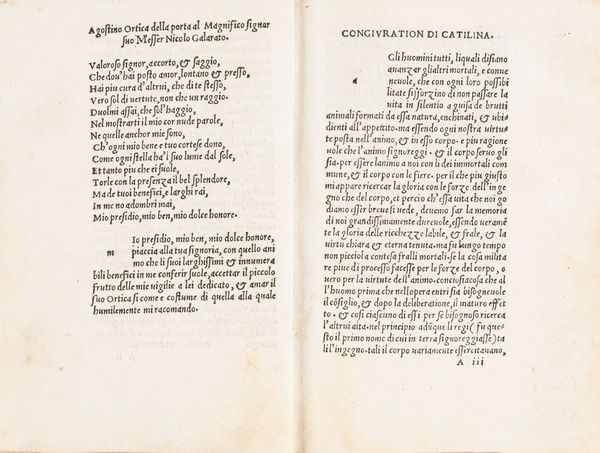 Agostino Ortica della porta al Magnifico signor
suo Messer Nicolo Galarato.
Valoroso signor, accorto, & saggio,
Che dou'hai posto amor, lontano & presso,
Hai piu cura d'altrui, che di te stesso,
Vero sol di uertute, non che un raggio.
Duolmi assai, che sol'haggio,
Nel mostrarti il mio cor nude parole,
Ne quelle anchor mie sono,
Ch'ogni mio bene e tuo cortese dono,
Come ogni stella ha'i suo lume dal sole,
Et tanto piu che ei suole,
Torle con la presenza il bel splendore,
Ma de tuoi benefici, e larghi rai,
In me no adombri mai,
Mio presidio, mio ben, mio dolce honore.
Io presidio, mio ben, mio dolce honore,
m piaccia alla tua signoria, con quello ani
mo che li suoi larghissimi & innumera
bili benefici in me conferir suole, accettar il piccolo
frutto delle mie uigilie a lei dedicato, & amar il
suo Ortica si come e costume di quella alla quale
humilemente mi racomando.
CONGIVRATION DI CATILINA.
Gli huomini tutti, liquali disiano
auanzar glialtri mortali, e conue
a neuole, che con ogni loro possibi
litate si sforzino di non passare la
uita in silentio a guisa de brutti
animali formati da essa natura, enchinati, & ubi-
dienti all'appetito. ma essendo ogni nostra uirtu-
te posta nell'animo, & in esso corpo. e piu ragione
uole che l'animo signoreggi. & il corpo seruo gli
sia. per essere lanimo a noi con li dei immortali com
mune, & il corpo con le fiere. per il che piu giusto
mi appare ricercar la gloria con le forze dell'inge
gno che del corpo, et percio ch'essa uita che noi go
diamo esser breue si uede, deuemo far la memoria
di noi grandissimamente durevole, essendo ueramē
te la gloria delle ricchezze labile, & frale, & la
uirtu chiara & eterna tenuta. ma fu lungo tempo
non picciola contesa fralli mortali. se la cosa milita
re piu di processo facesse per le forze del corpo, o
uero per la uirtute dell'animo. conciosiacosa che al
l'huomo prima che nell opera entri sia bisogneuole
il cōsiglio, & dopo la deliberatione, il maturo effet
to. & cosi ciascuno di essi per se bisognoso ricerca
l'altrui aita. nel principio adūque li regi (fu que-
sto il primo nome di cui in terra signoreggiasse) ta
li l'ingegno. tali il corpo uariamente essercitauano,
A iii